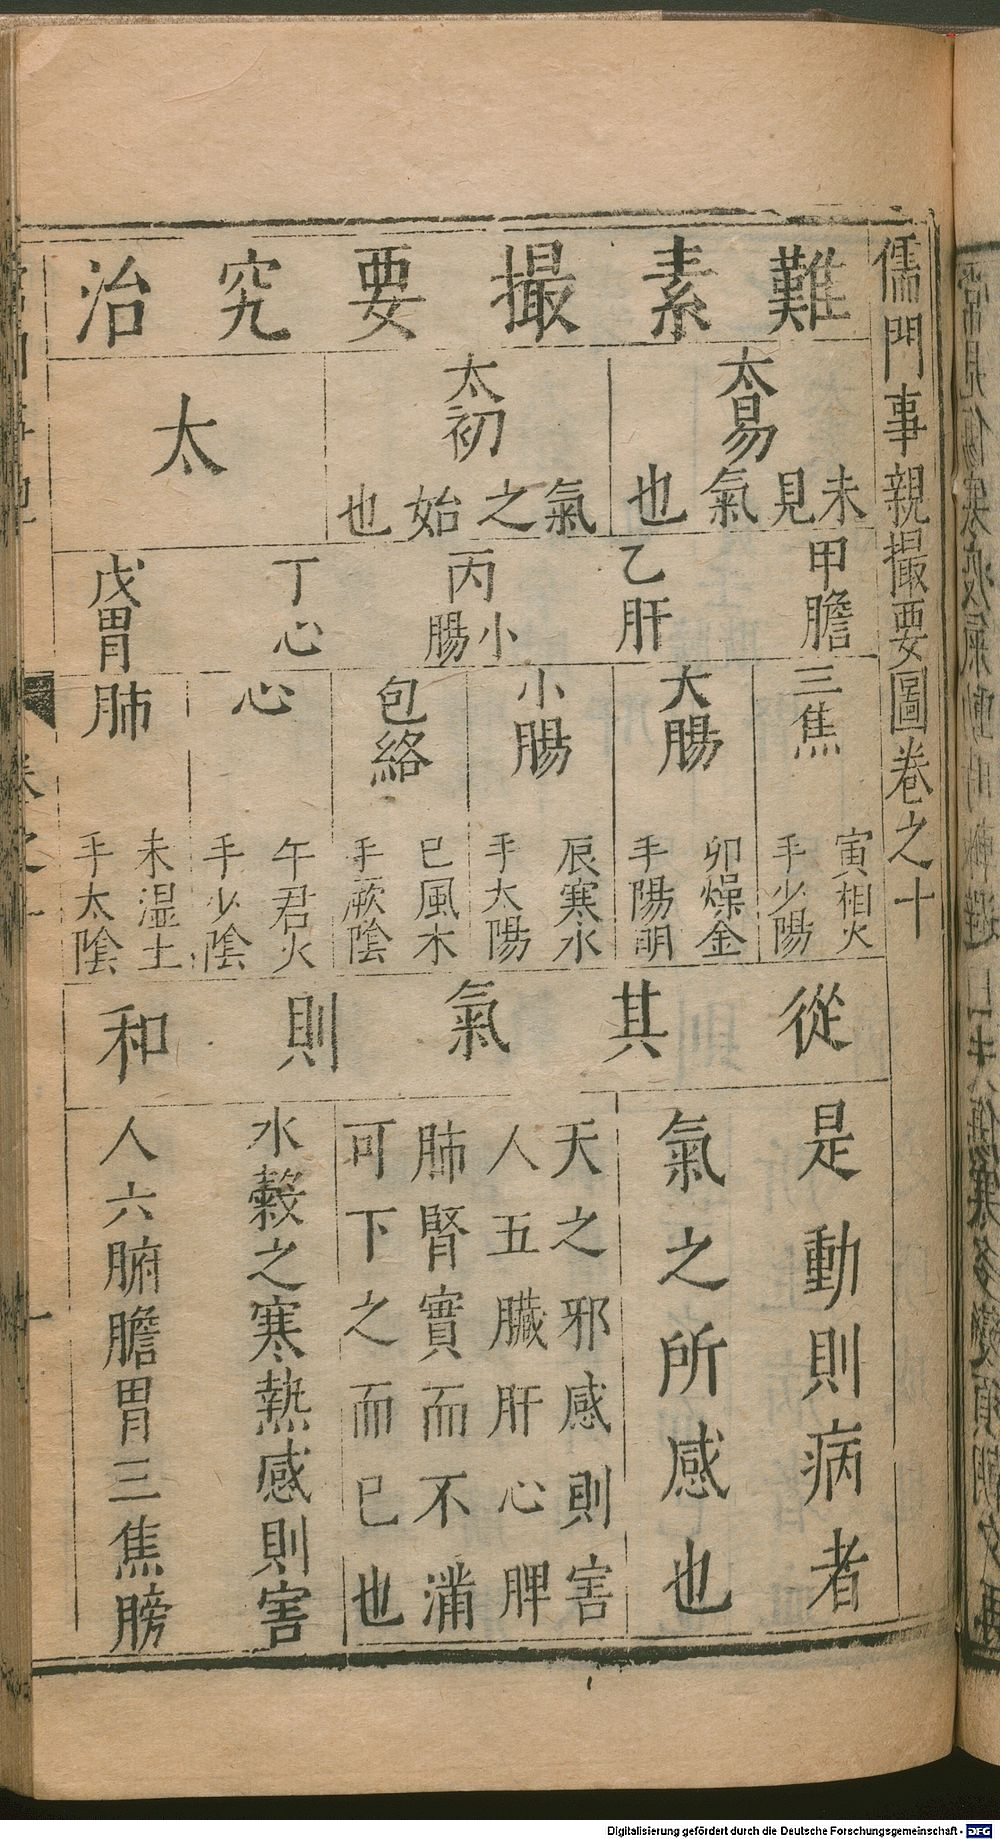 儒門事親撮要圖卷之十
難素撮要究治
太易
未見氣也
太初
氣之始也
太
甲膽
乙肝
丙小腸
丁心
戊胃
三焦
寅相火
手少陽
大腸
卯燥金
手陽明
小腸
辰寒水
手太陽
包絡
巳風木
手厥陰
心
午君火
手少陰
肺
未湿土
手太陰
從其氣則和
是動則病者
氣之所感也
天之邪感則害
人五臟肝心脾
肺腎實而不滿
可下之而已也
水穀之寒熱感則害
人六腑膽胃三焦膀
Digitalisierung gefördert durch die Deutsche Forschungsgemeinschaft - DFG